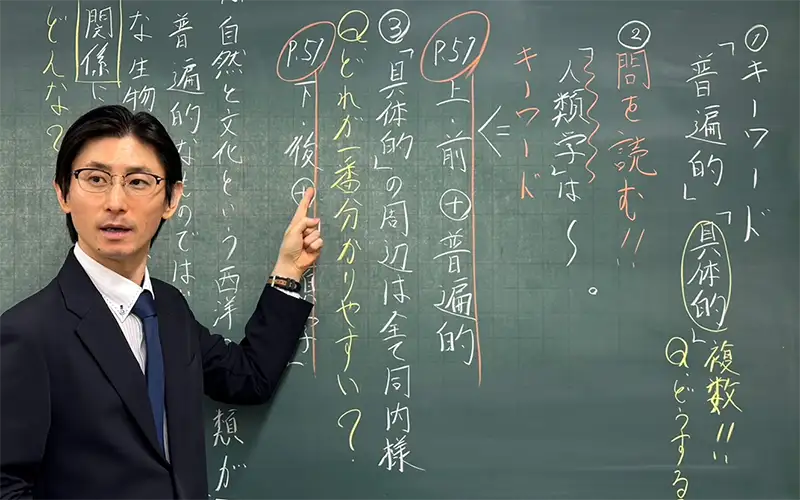 ①キーワード
「普遍的」「具体的」
複数!!
Q.どうする
②問を読む!!
「人類学」は〜。
キーワード
P.57 上・前 ⊕ 普遍的
③「具体的」の周辺は全て同内様
Q.どれが一番分かりやすい?
P.57 下・後 ⊕
自然と文化という西洋 類が
普遍的なものでは
な生物
関係に
どんな?